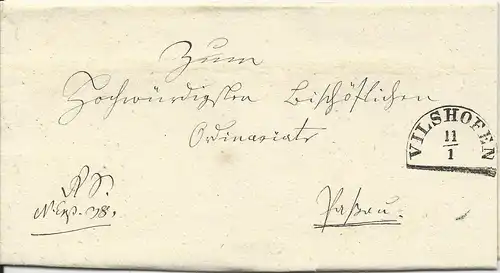 Zum
Hochwürdigsten Bischöflichen
Ordinariate
VILSHOFEN
11
1
R. S.
N. Exp. 38.
Paßau.